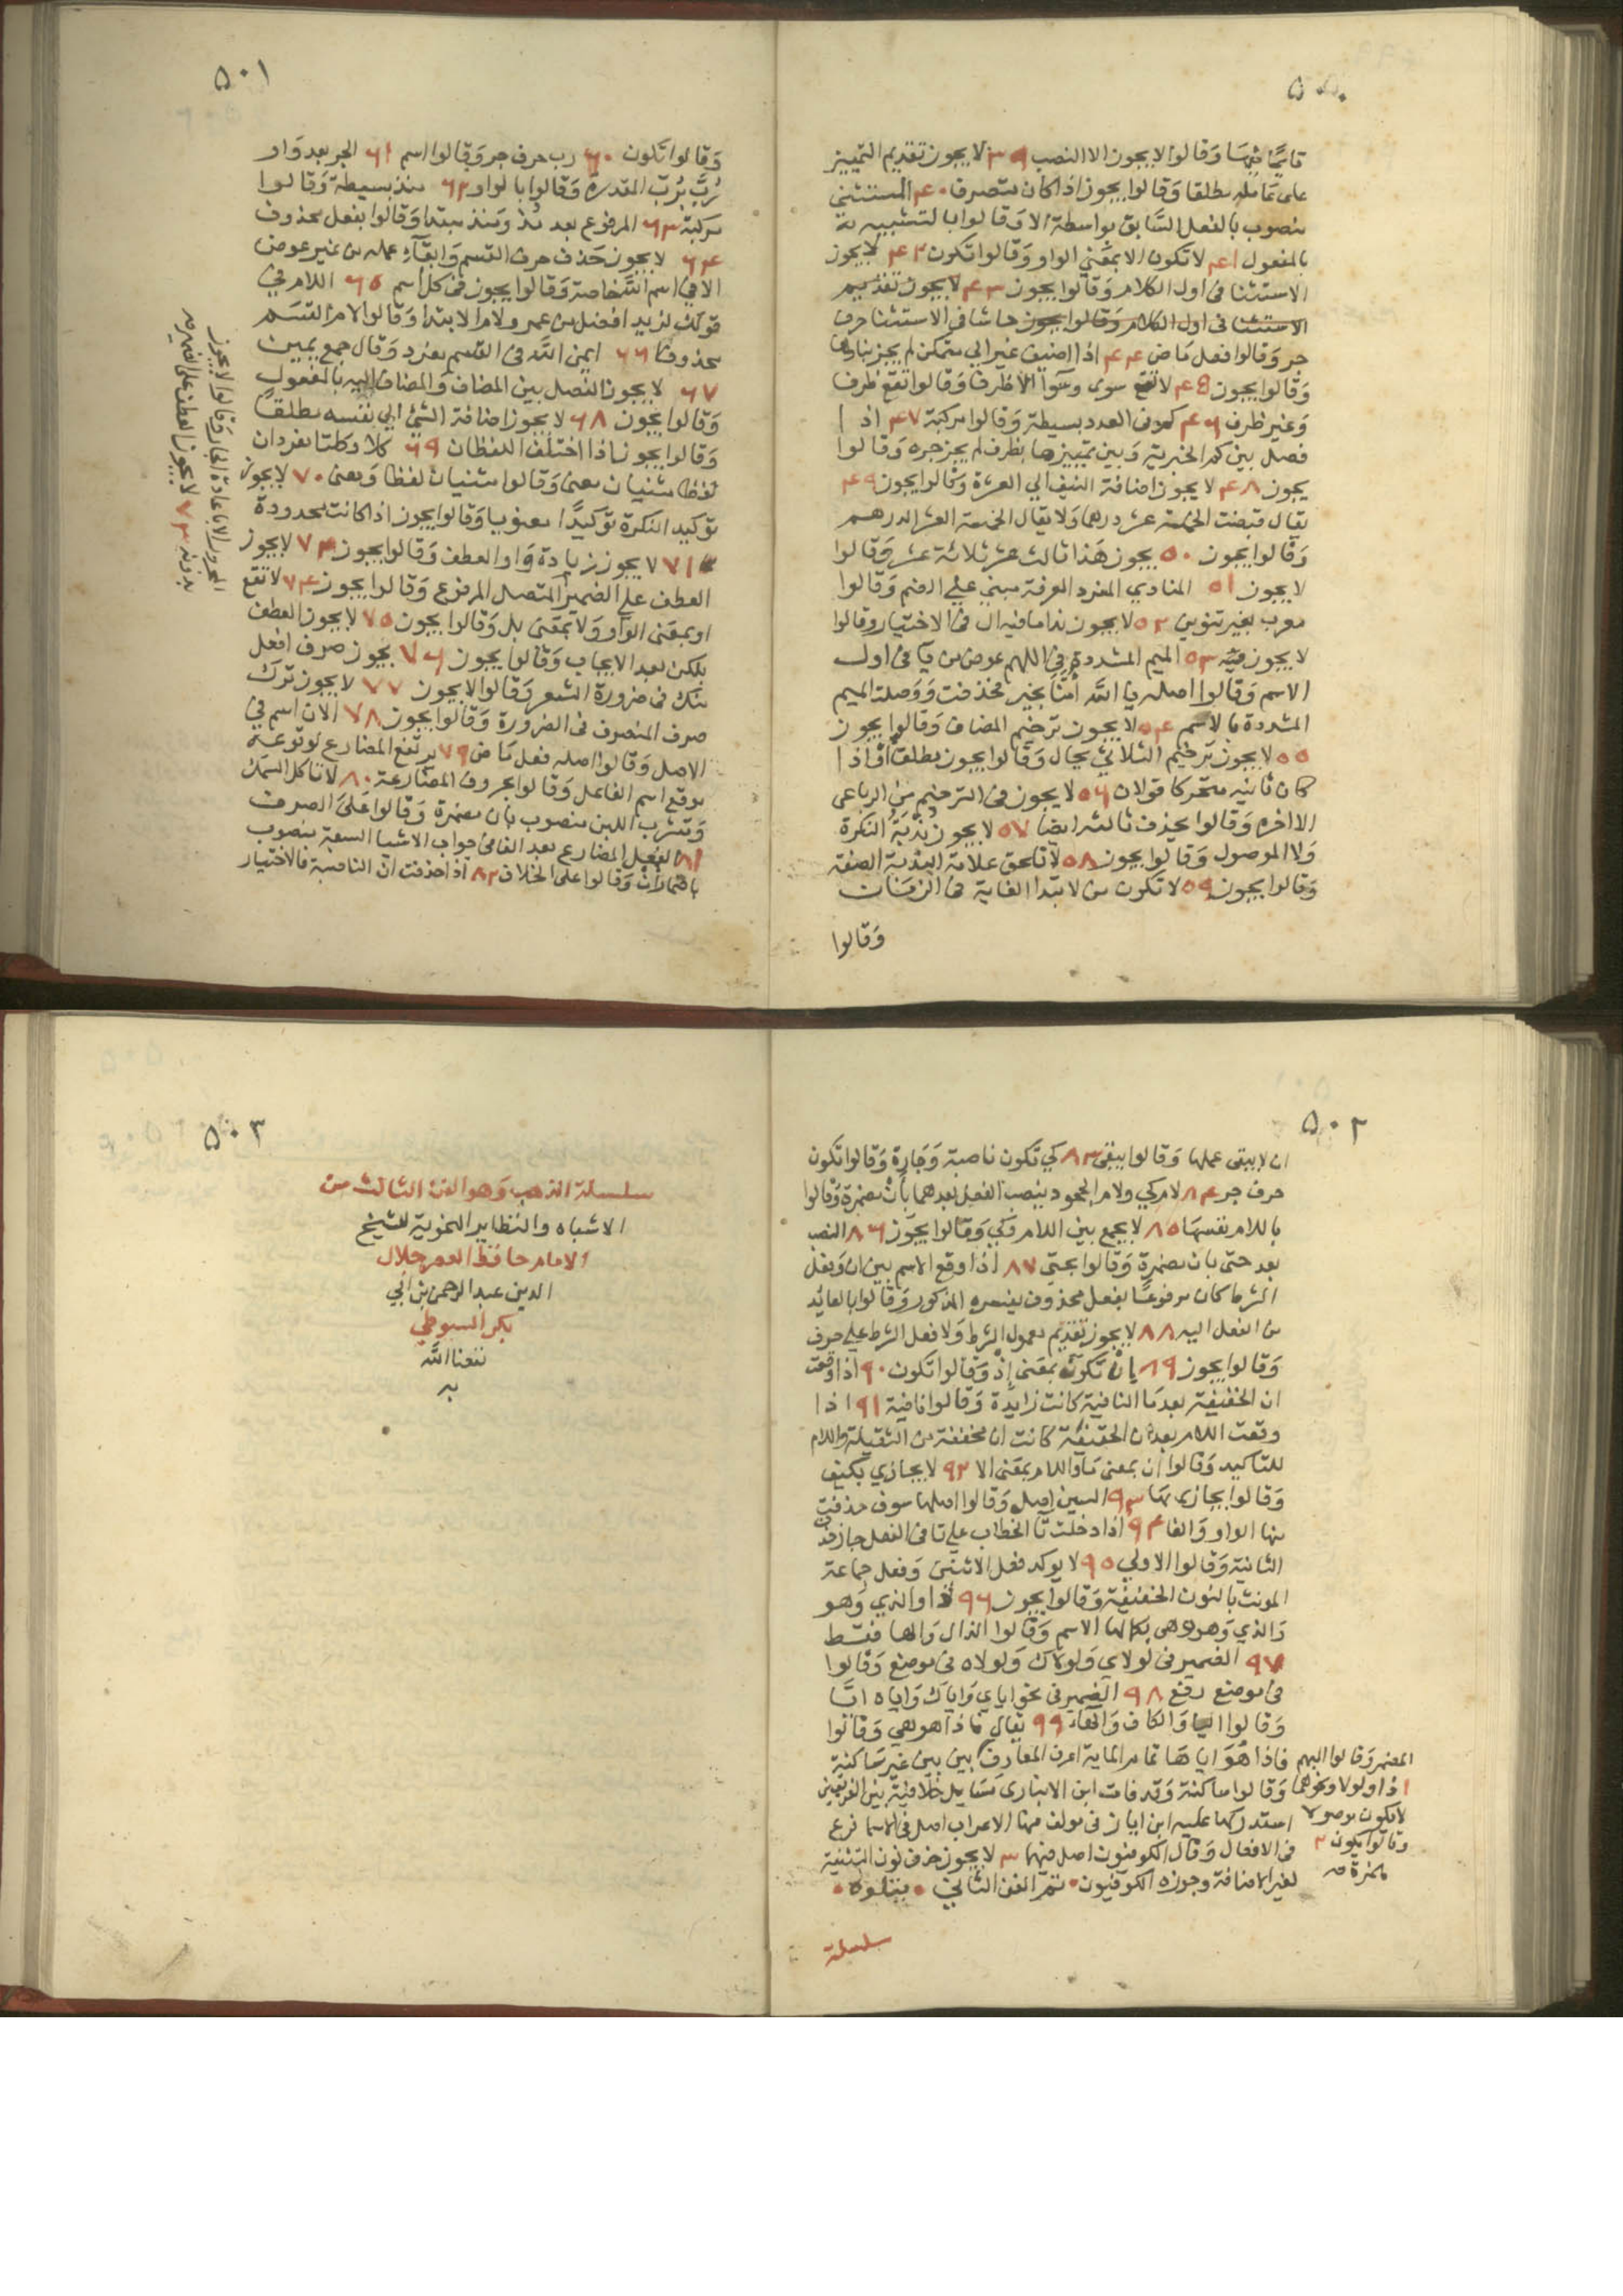 ۵۰۰
قايمًا فيها وقالوا لا يجوز الا النصب ۳۹ لا يجوز تقديم التمييز
على عامله مطلقا وقالوا يجوز اذا كان متصرف ۴۰ المستثنى
منصوب بالفعل السابق بواسطة الا وقالوا بالتشبيه به
بالمفعول ۴۱ لا تكون الا بمعنى الواو وقالوا تكون ۴۲ لا يجوز
الاستثنا في اول الكلام وقالوا يجوز ۴۳ لا يجوز تقديم
الاستثنا في اول الكلام وقالوا يجوز حاشا في الاستثنا حرف
جر وقالوا فعل ماض ۴۴ اذا اضيف غير الى متمكن لم يجز بناوها
وقالوا يجوز ۴۵ لا تقع سوى وسوآ الا ظرفا وقالوا تقع ظرفا
وغير ظرف ۴۶ كم في العدد بسيطة وقالوا مركبة ۴۷ اذا
فصل بين كم الخبرية وبين تمييزها بظرف لم يجز جره وقالوا
يجوز ۴۸ لا يجوز اضافة النيف الى العشرة وقالوا يجوز ۴۹
يقال قبضت الخمسة عشر درهما ولا يقال الخمسة العشر الدرهم
وقالوا يجوز ۵۰ يجوز هذا ثالث عشر ثلاثة عشر وقالوا
لا يجوز ۵۱ المنادي المفرد المعرفة مبني على الضم وقالوا
معرب بغير تنوين ۵۲ لا يجوز ندا ما فيه ال في الاختيار وقالوا
لا يجوز فيه ۵۳ الميم المشددة في اللهم عوض من يا في اول
الاسم وقالوا اصله يا الله أمّنا بخير فحذفت ووصلت الميم
المشددة بالاسم ۵۴ لا يجوز ترخيم المضاف وقالوا يجوز
۵۵ لا يجوز ترخيم الثلاثي بحال وقالوا يجوز مطلقا واذا
كان ثانيه متحركا قولان ۵۶ لا يجوز في الترخيم من الرباعي
الا اخره وقالوا يحذف ثالثه ايضا ۵۷ لا يجوز ندبة النكرة
ولا الموصول وقالوا يجوز ۵۸ لا تلحق علامة الندبة الصفة
وقالوا يجوز ۵۹ لا تكون من لابتدا الغاية في الزمان
وقالوا
۵۰۱
وقالوا تكون ۶۰ رب حرف جر وقالوا اسم ۶۱ الجر بعد واو
رُبَّ برُبّ المقدرة وقالوا بالواو ۶۲ منذ بسيطة وقالوا
مركبة ۶۳ المرفوع بعد مذ ومنذ مبتدا وقالوا بفعل محذوف
۶۴ لا يجوز حذف حرف القسم وابقآء عمله من غير عوض
الا في اسم الله خاصة وقالوا يجوز في كل اسم ۶۵ اللام في
قولك لزيد افضل من عمرو لام الابتدا وقالوا لام القسم
محذوفا ۶۶ ايمن الله في القسم مفرد وقال جمع يمين
۶۷ لا يجوز الفصل بين المضاف والمضاف اليه بالمفعول
وقالوا يجوز ۶۸ لا يجوز اضافة الشئ الى نفسه مطلقا
وقالوا يجوز اذا اختلف اللفظان ۶۹ كلا وكلتا مفردان
لفظا مثنيان معنى وقالوا مثنيان لفظا ومعنى ۷۰ لا يجوز
توكيد النكرة توكيدًا معنويا وقالوا يجوز اذا كانت محدودة
۷۱ لا يجوز زيادة واو العطف وقالوا يجوز ۷۲ لا يجوز
العطف على الضمير المتصل المرفوع وقالوا يجوز ۷۴ لا تقع
او بمعنى الواو ولا بمعنى بل وقالوا يجوز ۷۵ لا يجوز العطف
بلكن بعد الايجاب وقالوا يجوز ۷۶ يجوز صرف افعل
منك في ضرورة الشعر وقالوا لا يجوز ۷۷ لا يجوز ترك
صرف المنصرف في الضرورة وقالوا يجوز ۷۸ الان اسم في
الاصل وقالوا اصله فعل ماض ۷۹ يرتفع المضارع لوقوعه
موقع اسم الفاعل وقالوا بحروف المضارعة ۸۰ لا تاكل السمك
وتشرب اللبن منصوب بان مضمرة وقالوا على الصرف
۸۱ الفعل المضارع بعد الفا في جواب الاشيا السبعة منصوب
باضمار ان وقالوا على الخلاف ۸۲ اذا حذفت ان الناصبة فالاختيار
۷۳ لا يجوز العطف على الضمير
المجرور الا باعادة الجار وقالوا لا يجوز
بدونه
۵۰۲
ان لا يبقى عملها وقالوا يبقى ۸۳ كي تكون ناصبة وجارة وقالوا تكون
حرف جر ۸۴ لام كي ولام الجحود ينصب الفعل بعدهما بأن مضمرة وقالوا
باللام نفسها ۸۵ لا يجمع بين اللام وكي وقالوا يجوز ۸۶ النصب
بعد حتى بان مضمرة وقالوا بحتي ۸۷ اذا وقع الاسم بين ان وفعل
الشرط كان مرفوعًا بفعل محذوف يفسره المذكور وقالوا بالعائد
من الفعل اليه ۸۸ لا يجوز تقديم معمول الشرط ولا فعل الشرط على حرف
وقالوا يجوز ۸۹ إن تكون بمعنى إذ وقالوا تكون ۹۰ اذا وقعت
ان الخفيفة بعد ما النافية كانت زايدة وقالوا نافية ۹۱ اذا
وقعت اللام بعد ان الخفيفة كانت ان مخففة من الثقيلة واللام
للتاكيد وقالوا ان بمعنى ما واللام بمعنى الا ۹۲ لا يجازي بكيف
وقالوا يجازى بها ۹۳ السين اصل وقالوا اصلها سوف حذفت
منها الواو والفا ۹۴ اذا دخلت تا الخطاب على تا في الفعل جاز حذف
الثانية وقالوا الاولي ۹۵ لا يوكد فعل الاثنين وفعل جماعة
المونث بالنون الخفيفة وقالوا يجوز ۹۶ ذا والذي وهو
والذي وهو وهى بكمالها الاسم وقالوا الذال والها فقط
۹۷ الضمير في لولاي ولولاك ولولاه في موضع وقالوا
في موضع رفع ۹۸ الضمير في نحو اياي واياك واياه ايّا
وقالوا اليا والكاف والهاء ۹۹ يقال فاذا هو هي وقالوا
فاذا هُوَ اياها تمام الماية اعرف المعارف بين بين غير ساكنة
وقالوا ساكنة وقد فات ابن الانبارى مسايل خلافية بين الفريقين
استدركها عليه ابن اياز في مولف منها الاعراب اصل في الاسما فرع
في الافعال وقال الكوفيون اصل فيها ۳ لا يجوز حذف نون التثنية
لغير الاضافة وجوزه الكوفيون • تم الفن الثاني • يتلوه •
المضمر وقالوا المبهم
اذا ولولا ونحوهما
لا يكون موصولا
وقالوا يكون ۲
همزة
سلسلة
۵۰۳
سلسلة الذهب وهو الفن الثالث من
الاشباه والنظاير النحوية للشيخ
الامام حافظ العصر جلال
الدين عبد الرحمن بن ابي
بكر السيوطي
نفعنا الله
به